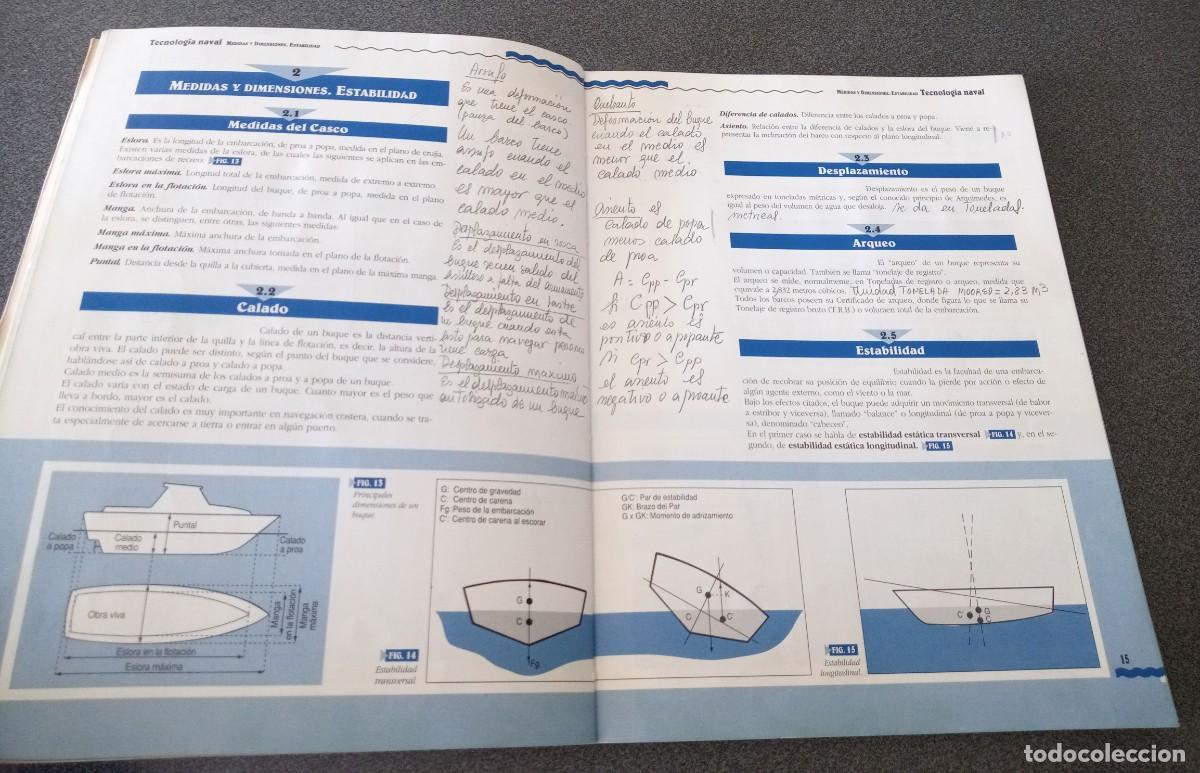 Tecnología naval MEDIDAS Y DIMENSIONES. ESTABILIDAD
2
MEDIDAS Y DIMENSIONES. ESTABILIDAD
2.1
Medidas del Casco
Eslora. Es la longitud de la embarcación, de proa a popa, medida en el plano de crujía.
Existen varias medidas de la eslora, de las cuales las siguientes se aplican en las em-
barcaciones de recreo: FIG. 13
Eslora máxima. Longitud total de la embarcación, medida de extremo a extremo.
Eslora en la flotación. Longitud del buque, de proa a popa, medida en el plano
de flotación.
Manga. Anchura de la embarcación, de banda a banda. Al igual que en el caso de
la eslora, se distinguen, entre otras, las siguientes medidas:
Manga máxima. Máxima anchura de la embarcación.
Manga en la flotación. Máxima anchura tomada en el plano de la flotación.
Puntal. Distancia desde la quilla a la cubierta, medida en el plano de la máxima manga.
2.2
Calado
Calado de un buque es la distancia verti-
cal entre la parte inferior de la quilla y la línea de flotación, es decir, la altura de la
obra viva. El calado puede ser distinto, según el punto del buque que se considere,
hablándose así de calado a proa y calado a popa.
Calado medio es la semisuma de los calados a proa y a popa de un buque.
El calado varía con el estado de carga de un buque. Cuanto mayor es el peso que
lleva a bordo, mayor es el calado.
El conocimiento del calado es muy importante en navegación costera, cuando se tra-
ta especialmente de acercarse a tierra o entrar en algún puerto.
Arrufo
Es una deformación
que tiene el casco.
(panza del barco)
Un barco tiene
arrufo cuando el
calado en el medio
es mayor que el
calado medio.
Desplazamiento en rosca
Es el desplazamiento del
buque recien salido del
astillero a falta del armamento
Desplazamiento en lastre
Es el desplazamiento de
un buque cuando está
listo para navegar pero no
tiene carga.
Desplazamiento maximo
Es el desplazamiento maximo
autorizado de un buque
FIG. 13
Principales
dimensiones de un
buque
Puntal
Calado
a popa
Calado
medio
Calado
a proa
Obra viva
Manga
en la flotación
Manga
máxima
Eslora en la flotación
Eslora máxima
FIG. 14
Estabilidad
transversal
G: Centro de gravedad
C: Centro de carena
Fg: Peso de la embarcación
C': Centro de carena al escorar
G
C
Fg
MEDIDAS Y DIMENSIONES. ESTABILIDAD Tecnología naval
Quebranto
Deformación del buque
cuando el calado
en el medio es
menor que el
calado medio
Asiento es
Calado de popa
menos calado
de proa
A = Cpp - Cpr
Cpp > Cpr
es asiento es
positivo o apopante
si Cpr > Cpp
el asiento es
negativo o aproante
Diferencia de calados. Diferencia entre los calados a proa y popa.
Asiento. Relación entre la diferencia de calados y la eslora del buque. Viene a re-
presentar la inclinación del barco con respecto al plano longitudinal.
2.3
Desplazamiento
Desplazamiento es el peso de un buque
expresado en toneladas métricas y, según el conocido principio de Arquímedes, es
igual al peso del volumen de agua que desaloja. Se da en Toneladas
métricas.
2.4
Arqueo
El "arqueo" de un buque representa su
volumen o capacidad. También se llama "tonelaje de registro".
El arqueo se mide, normalmente, en Toneladas de registro o arqueo, medida que
equivale a 2,832 metros cúbicos. Unidad TONELADA MOORSO = 2,83 m3
Todos los barcos poseen su Certificado de arqueo, donde figura lo que se llama su
Tonelaje de registro bruto (T.R.B.) o volumen total de la embarcación.
2.5
Estabilidad
Estabilidad es la facultad de una embarca-
ción de recobrar su posición de equilibrio cuando la pierde por acción o efecto de
algún agente externo, como el viento o la mar.
Bajo los efectos citados, el buque puede adquirir un movimiento transversal (de babor
a estribor y viceversa), llamado "balance" o longitudinal (de proa a popa y vicever-
sa), denominado "cabeceo".
En el primer caso se habla de estabilidad estática transversal FIG. 14 y, en el se-
gundo, de estabilidad estática longitudinal. FIG. 15
G/C': Par de estabilidad
GK: Brazo del Par
G x GK: Momento de adrizamiento
G
K
C
C'
FIG. 15
Estabilidad
longitudinal
C'
G
C
15
todocoleccion